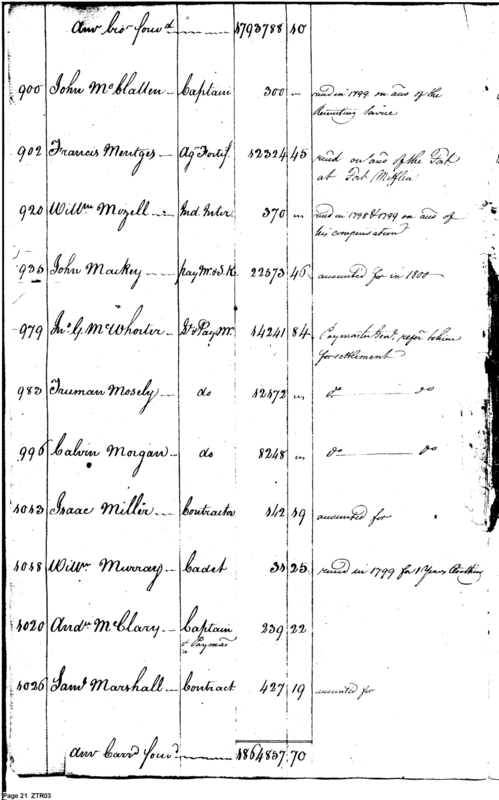 Amt bro.t forw.d 1793788 10
900 John McClallen Captain 300 " recd in 1799 on acct of the
Recruiting Service
902 Francis Mentges Ag Fortif. 12324 45 recd on acct of the Fort
at Fort Mifflin
920 Willm Mozell Ind. Inter 370 " recd in 1798 & 1799 on acct of
his compensation
935 John Mackey pay Mr & S.K. 22573 46 accounted for in 1800
979 Jno G McWhorter Lt & Pay Mr. 14241 84 Paymaster Genl. refer to him
for settlement
983 Truman Mosely do 12172 " do do
996 Calvin Morgan do 8248 " do do
1013 Isaac Miller Contractor 142 19 accounted for
1018 Willm Murray Cadet 31 25 recd in 1799 for 1 Years Clothing
1020 Andw McClary Captain 239 22
& Paymas
1026 Saml Marshall Contract 427 19 accounted for
Amt Carrd forwd 1864857 70
Page 21 ZTR03